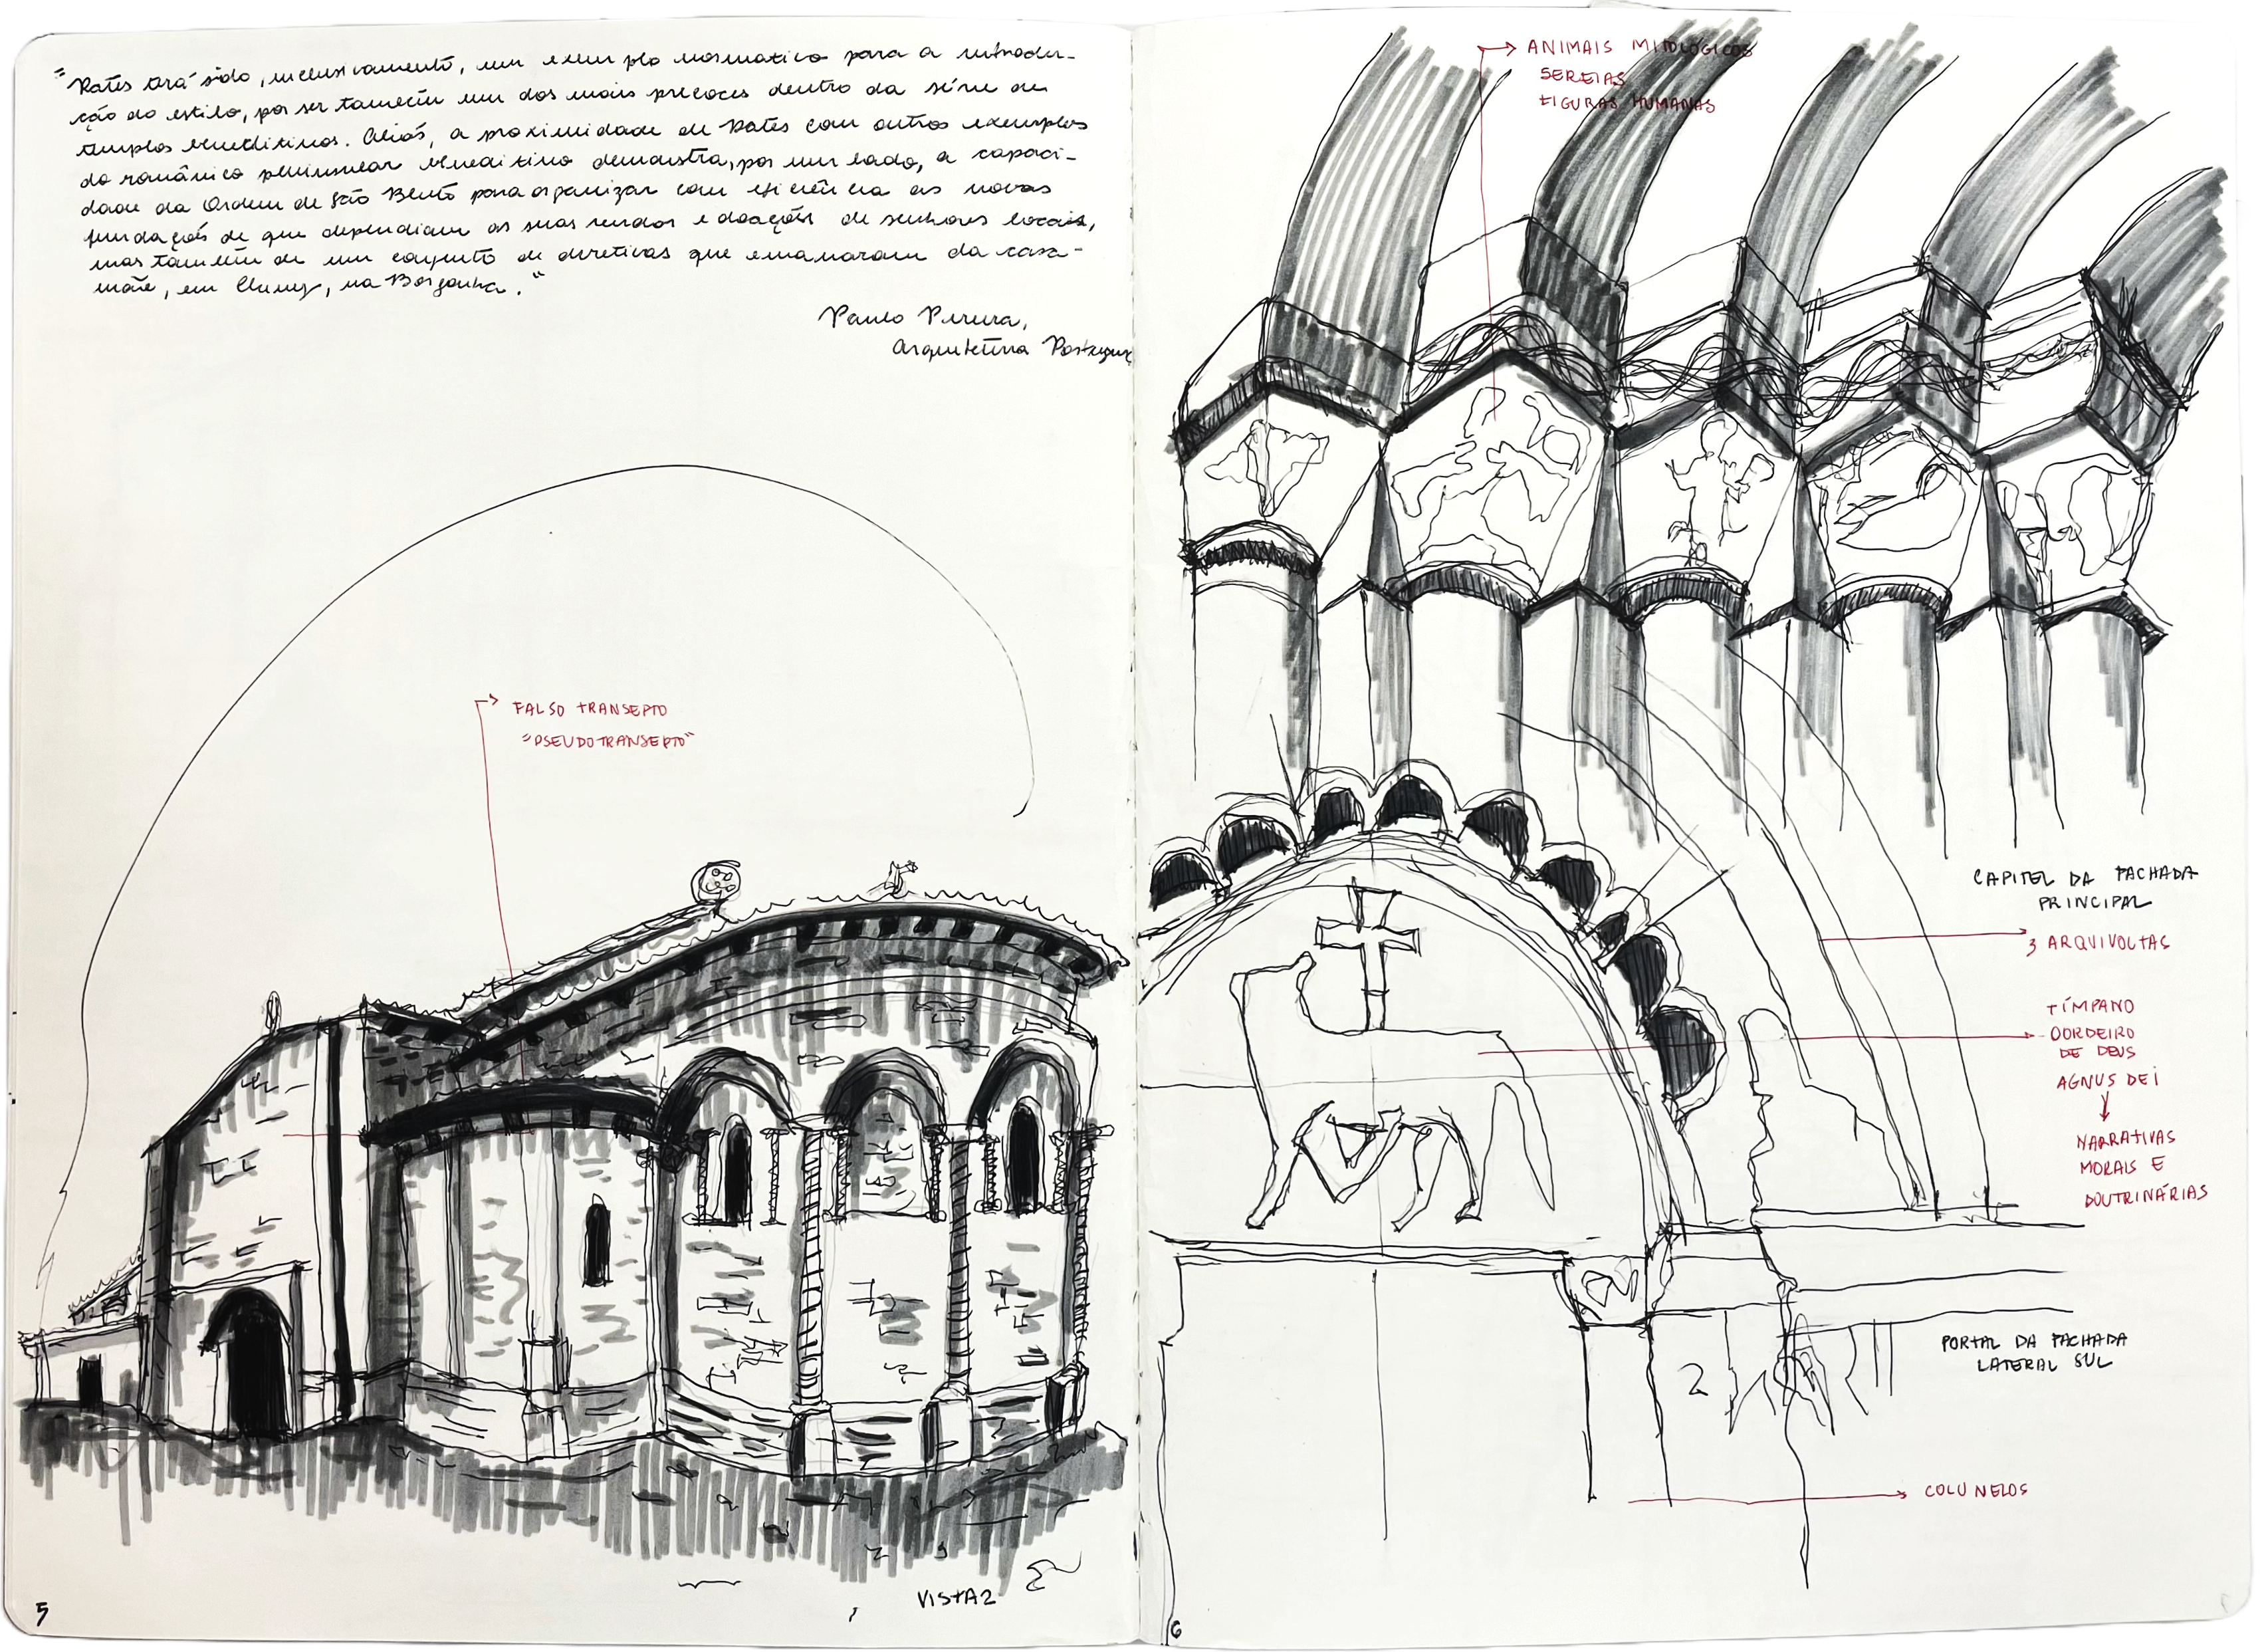 "Rates terá sido, inclusivamente, um exemplo normativo para a introdu-
ção do estilo, por ser também um dos mais precoces dentro da série de
templos beneditinos. Aliás, a proximidade de Rates com outros exemplos
do românico peninsular beneditino demonstra, por um lado, a capaci-
dade da Ordem de São Bento para organizar com eficiência as novas
fundações de que dependiam as suas rendas e doações de senhores locais,
mas também de um conjunto de diretivas que emanaram da casa-
mãe, em Cluny, na Borgonha."
Paulo Pereira,
Arquitetura Portugu
FALSO TRANSEPTO
"PSEUDOTRANSEPTO"
VISTA 2
5
ANIMAIS MITOLÓGICOS
SEREIAS
FIGURAS HUMANAS
CAPITEL DA FACHADA
PRINCIPAL
3 ARQUIVOLTAS
TÍMPANO
OORDEIRO
DE DEUS
AGNUS DEI
NARRATIVAS
MORAIS E
DOUTRINÁRIAS
PORTAL DA FACHADA
LATERAL SUL
2
COLUNELOS
6